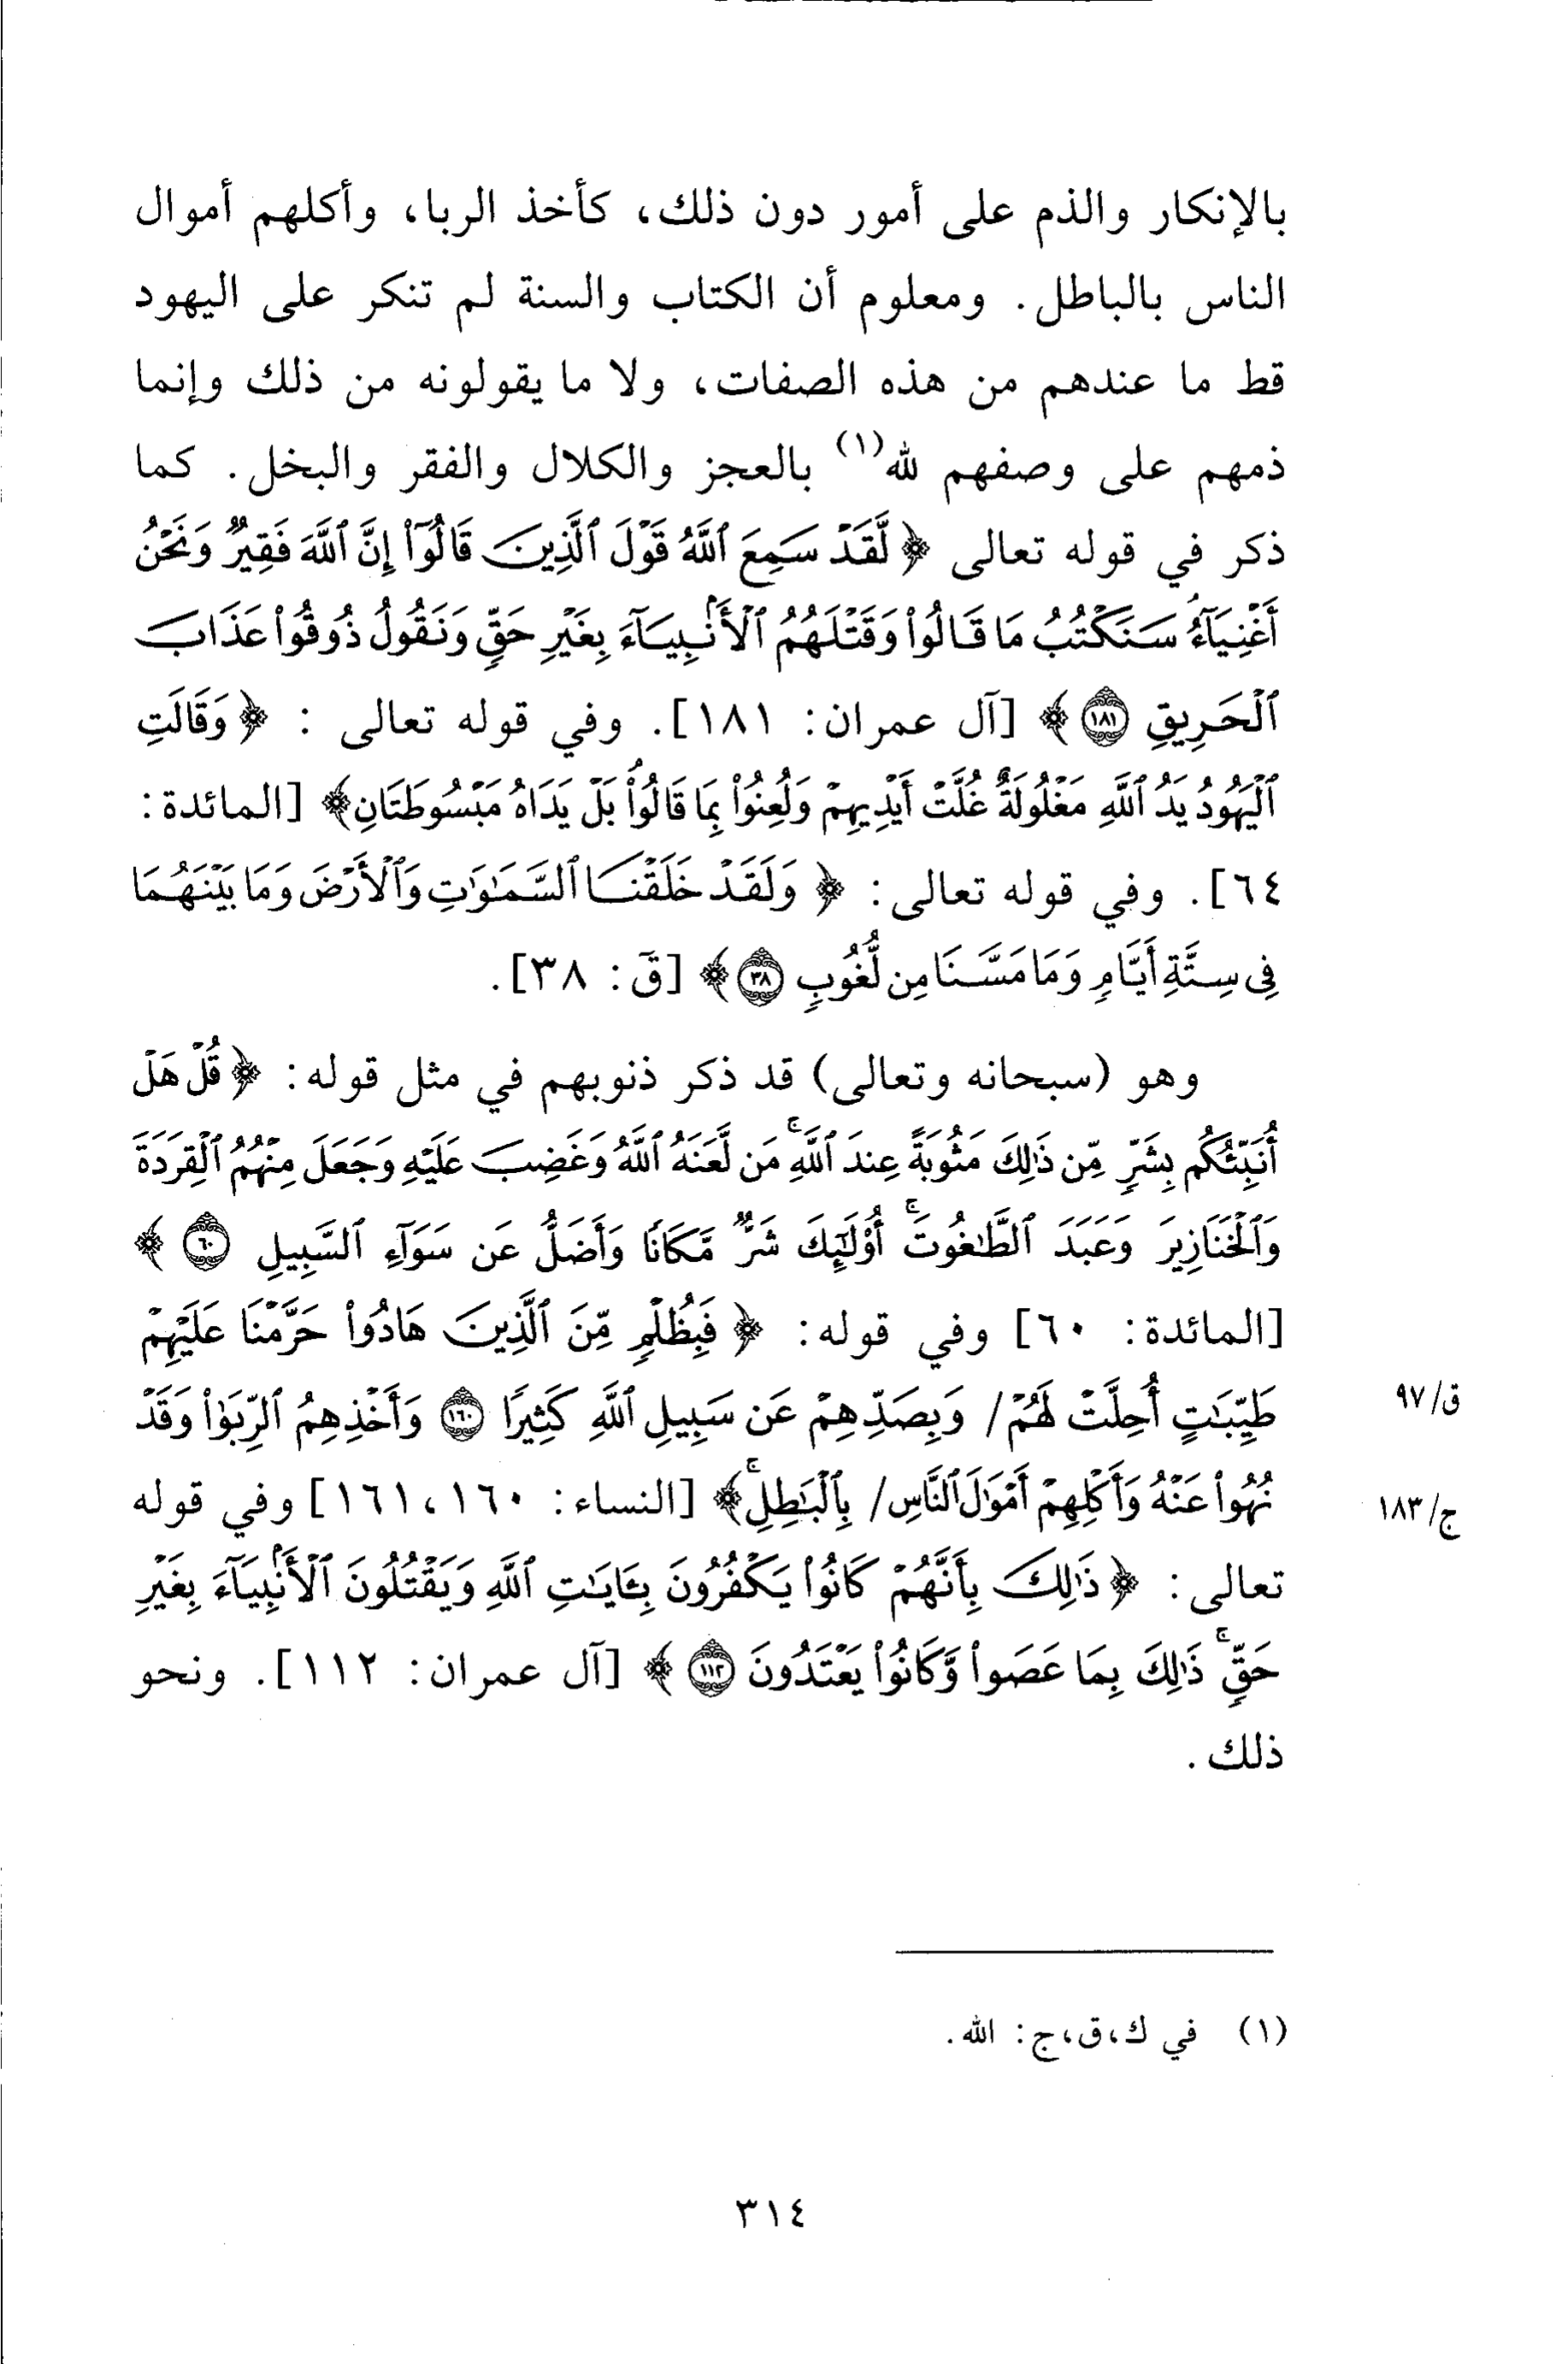 بالإنكار والذم على أمور دون ذلك، كأخذ الربا، وأكلهم أموال
الناس بالباطل. ومعلوم أن الكتاب والسنة لم تنكر على اليهود
قط ما عندهم من هذه الصفات، ولا ما يقولونه من ذلك وإنما
ذمهم على وصفهم لله(١) بالعجز والكلال والفقر والبخل. كما
ذكر في قوله تعالى ﴿ لَّقَدْ سَمِعَ ٱللَّهُ قَوْلَ ٱلَّذِينَ قَالُوٓاْ إِنَّ ٱللَّهَ فَقِيرٌ وَنَحْنُ
أَغْنِيَآءُ سَنَكْتُبُ مَا قَالُواْ وَقَتْلَهُمُ ٱلْأَنۢبِيَآءَ بِغَيْرِ حَقٍّ وَنَقُولُ ذُوقُواْ عَذَابَ
ٱلْحَرِيقِ ١٨١ ﴾ [آل عمران: ١٨١]. وفي قوله تعالى : ﴿ وَقَالَتِ
ٱلْيَهُودُ يَدُ ٱللَّهِ مَغْلُولَةٌ غُلَّتْ أَيْدِيهِمْ وَلُعِنُواْ بِمَا قَالُواْۘ بَلْ يَدَاهُ مَبْسُوطَتَانِ﴾ [المائدة:
٦٤]. وفي قوله تعالى: ﴿ وَلَقَدْ خَلَقْنَا ٱلسَّمَٰوَٰتِ وَٱلْأَرْضَ وَمَا بَيْنَهُمَا
فِى سِتَّةِ أَيَّامٍ وَمَا مَسَّنَا مِن لُّغُوبٍ ٣٨ ﴾ [قٓ: ٣٨].
وهو (سبحانه وتعالى) قد ذكر ذنوبهم في مثل قوله: ﴿ قُلْ هَلْ
أُنَبِّئُكُم بِشَرٍّ مِّن ذَٰلِكَ مَثُوبَةً عِندَ ٱللَّهِۚ مَن لَّعَنَهُ ٱللَّهُ وَغَضِبَ عَلَيْهِ وَجَعَلَ مِنْهُمُ ٱلْقِرَدَةَ
وَٱلْخَنَازِيرَ وَعَبَدَ ٱلطَّٰغُوتَۚ أُوْلَٰٓئِكَ شَرٌّ مَّكَانًا وَأَضَلُّ عَن سَوَآءِ ٱلسَّبِيلِ ٦٠ ﴾
[المائدة: ٦٠] وفي قوله: ﴿ فَبِظُلْمٍ مِّنَ ٱلَّذِينَ هَادُواْ حَرَّمْنَا عَلَيْهِمْ
طَيِّبَٰتٍ أُحِلَّتْ لَهُمْ/ وَبِصَدِّهِمْ عَن سَبِيلِ ٱللَّهِ كَثِيرًا ١٦٠ وَأَخْذِهِمُ ٱلرِّبَوٰاْ وَقَدْ
ق/٩٧
نُهُواْ عَنْهُ وَأَكْلِهِمْ أَمْوَٰلَ ٱلنَّاسِ/ بِٱلْبَٰطِلِۚ﴾ [النساء: ١٦٠، ١٦١] وفي قوله
ج/١٨٣
تعالى: ﴿ ذَٰلِكَ بِأَنَّهُمْ كَانُواْ يَكْفُرُونَ بِـَٔايَٰتِ ٱللَّهِ وَيَقْتُلُونَ ٱلْأَنۢبِيَآءَ بِغَيْرِ
حَقٍّۚ ذَٰلِكَ بِمَا عَصَواْ وَّكَانُواْ يَعْتَدُونَ ١١٢ ﴾ [آل عمران: ١١٢]. ونحو
ذلك.
(١) في ك،ق،ج: الله.
٣١٤